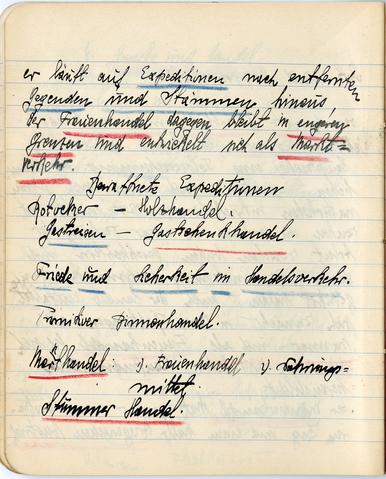 er läuft auf Expeditionen nach entfernten
Gegenden und Stämmen hinaus,
der Frauenhandel dagegen bleibt in engeren
Grenzen und entwickelt sich als Markt=
verkehr.
Expeditionen
– Holzhandel.
Gastreisen – Gastschenkhandel.
Friede und Sicherheit im Handelsverkehr.
Primitiver Binnenhandel.
Markthandel: 1) Frauenhandel 2) Nahrungs-
mittel.
Stummer Handel.